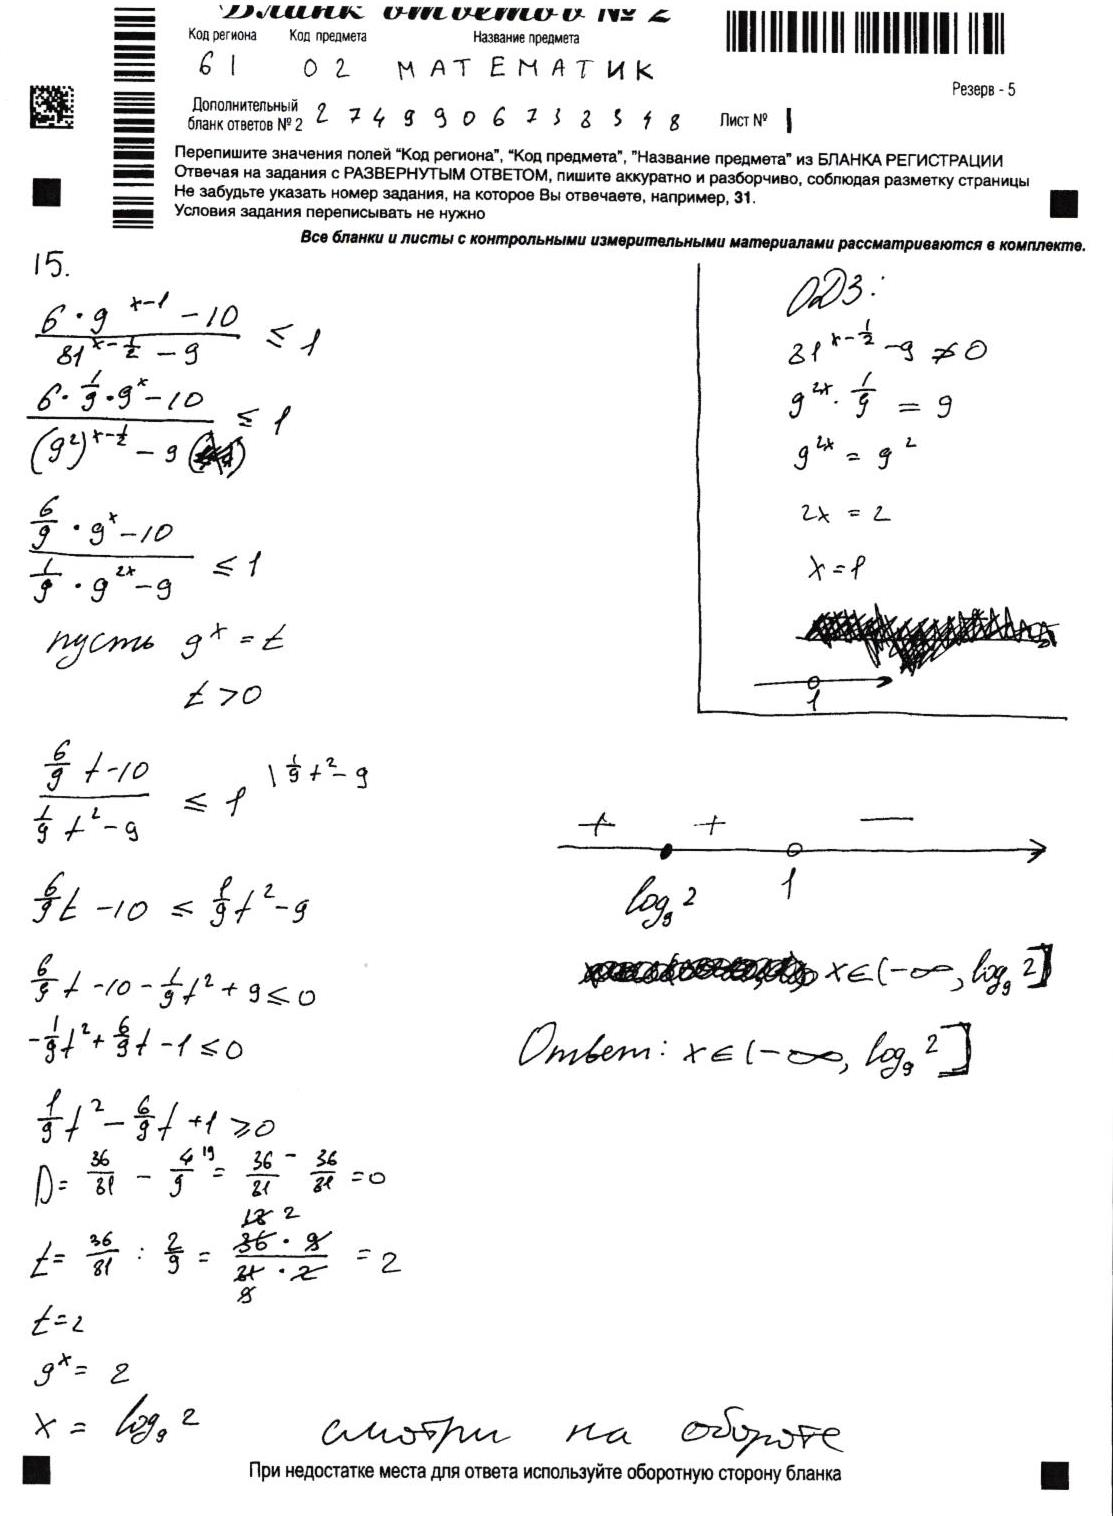 Бланк ответов № 2
Код региона Код предмета Название предмета
61 02 МАТЕМАТИК
Резерв - 5
Дополнительный
бланк ответов № 2
Лист № 1
Перепишите значения полей "Код региона", "Код предмета", "Название предмета" из БЛАНКА РЕГИСТРАЦИИ
Отвечая на задания с РАЗВЕРНУТЫМ ОТВЕТОМ, пишите аккуратно и разборчиво, соблюдая разметку страницы
Не забудьте указать номер задания, на которое Вы отвечаете, например, 31.
Условия задания переписывать не нужно
Все бланки и листы с контрольными измерительными материалами рассматриваются в комплекте.
15.
(6·9^(x-1) - 10)/(81^(x-1/2) - 9) ≤ 1
(6·1/9·9^x - 10)/((9²)^(x-1/2) - 9) ≤ 1
(6/9·9^x - 10)/(1/9·9^(2x) - 9) ≤ 1
пусть 9^x = t
t > 0
(6/9 t - 10)/(1/9 t² - 9) ≤ 1 \ 1/9 t² - 9
6/9 t - 10 ≤ 1/9 t² - 9
6/9 t - 10 - 1/9 t² + 9 ≤ 0
-1/9 t² + 6/9 t - 1 ≤ 0
1/9 t² - 6/9 t + 1 ≥ 0
D = 36/81 - 4/9 \9 = 36/81 - 36/81 = 0
t = 36/81 : 2/9 = (36·9)/(81·2) = 2
t = 2
9^x = 2
x = log₉ 2
ОДЗ:
81^(x-1/2) - 9 ≠ 0
9^(2x)·1/9 = 9
9^(2x) = 9²
2x = 2
x = 1
1
+ + −
log₉ 2 1
x ∈ (-∞, log₉ 2]
Ответ: x ∈ (-∞, log₉ 2]
смотри на обороте
При недостатке места для ответа используйте оборотную сторону бланка